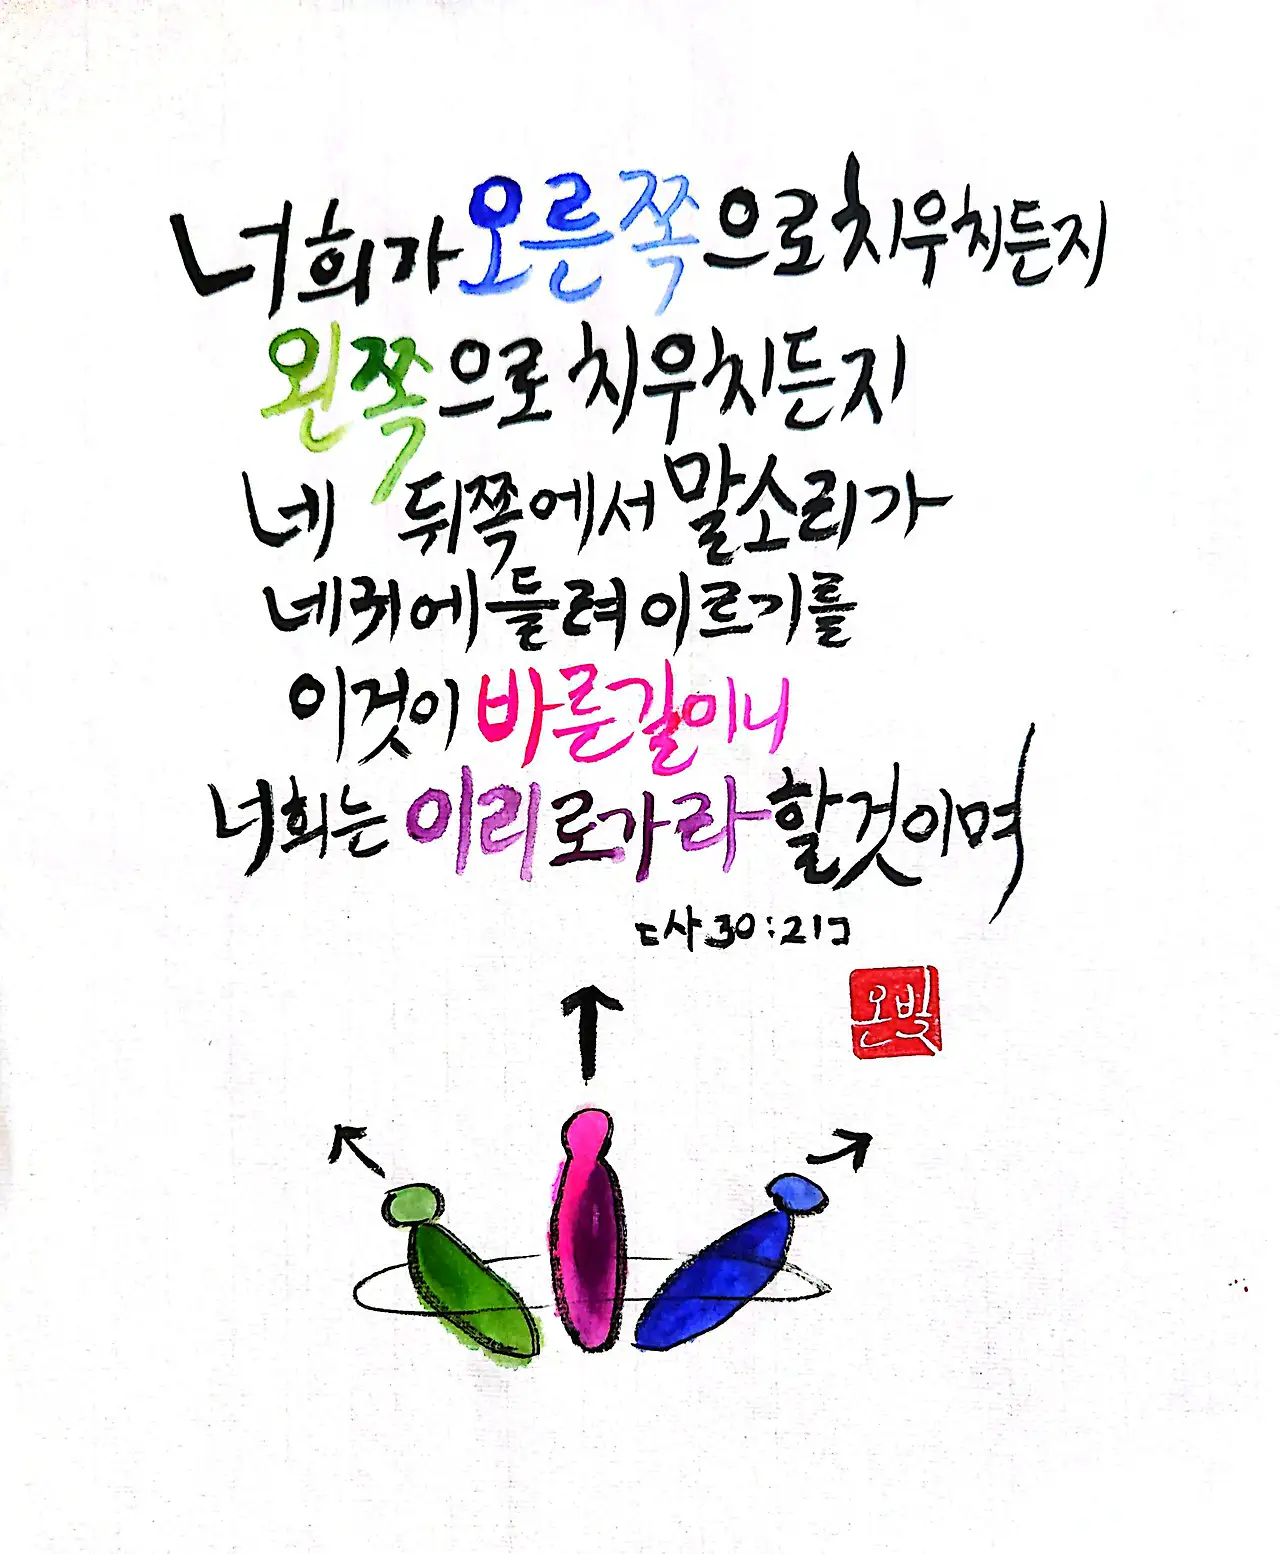 너희가 오른쪽으로 치우치든지
왼쪽으로 치우치든지
네 뒤쪽에서 말소리가
네 귀에 들려 이르기를
이것이 바른길이니
너희는 이리로 가라 할 것이며
[사 30:21]
온빛